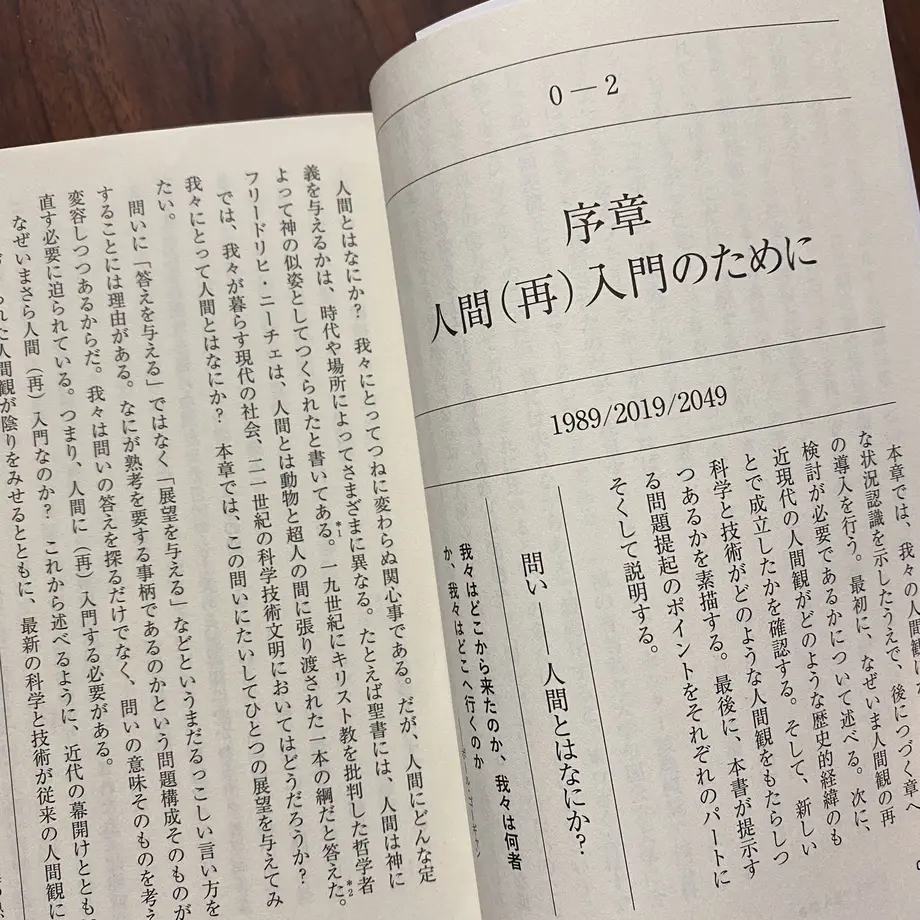 0—2
序章
人間(再)入門のために
1989/2019/2049
本章では、我々の人間観
な状況認識を示したうえで、後につづく章へ
の導入を行う。最初に、なぜいま人間観の再
検討が必要であるかについて述べる。次に、
近現代の人間観がどのような歴史的経緯のも
とで成立したかを確認する。そして、新しい
科学と技術がどのような人間観をもたらしつ
つあるかを素描する。最後に、本書が提示す
る問題提起のポイントをそれぞれのパートに
そくして説明する。
問い——人間とはなにか?
我々はどこから来たのか、我々は何者
か、我々はどこへ行くのか
人間とはなにか? 我々にとってつねに変わらぬ関心事である。だが、人間にどんな定
義を与えるかは、時代や場所によってさまざまに異なる。たとえば聖書には、人間は神に
よって神の似姿としてつくられたと書いてある。*1 一九世紀にキリスト教を批判した哲学者
フリードリヒ・ニーチェは、人間とは動物と超人の間に張り渡された一本の綱だと答えた。*2
では、我々が暮らす現代の社会、二一世紀の科学技術文明においてはどうだろうか?
我々にとって人間とはなにか? 本章では、この問いにたいしてひとつの展望を与えてみ
たい。
問いに「答えを与える」ではなく「展望を与える」などというまだるっこしい言い方を
することには理由がある。なにが熟考を要する事柄であるのかという問題構成そのものが
変容しつつあるからだ。我々は問いの答えを探るだけでなく、問いの意味そのものを考え
直す必要に迫られている。つまり、人間に(再)入門する必要がある。
なぜいまさら人間(再)入門なのか? これから述べるように、近代の幕開けととも
られた人間観が陰りをみせるとともに、最新の科学と技術が従来の人間観に